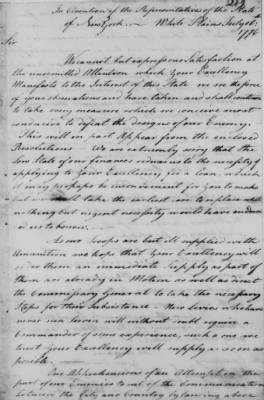 In Convention of the Representatives of the State
of New York White Plains July
1776
Sir
We cannot but express our Satisfaction at
the unremitted Attention which Your Excellency
Manifests to the Interest of this State we see the force
of your observations and have taken and shall continue
to take every measure which we conceive most
conducive to defeat the designs of our Enemy
This will in part Appear from the enclosed
Resolutions We are extremely sorry that the
low State of our finances reduces us to the necessity of
applying to Your Excellency for a loan which
it may perhaps be inconvenient for you to make
but we shall take the earliest care to replace
nothing but urgent necessity would have
us to borrow
As our Troops are but Ill supplied with
Amunition we hope that Your Excellency will
order them an immediate Supply as part of
them are already in Motion as well as direct
the Commissary General to take the necessary
Steps for their Subsistance New Levies who have
never seen Service will without doubt require a
Commander of some experience such a one we
trust Your Excellency will supply as soon as
possible
Our Apprehensions of an Attempt on the
part of our Enemies to cut of the Communication
between the City and Country by